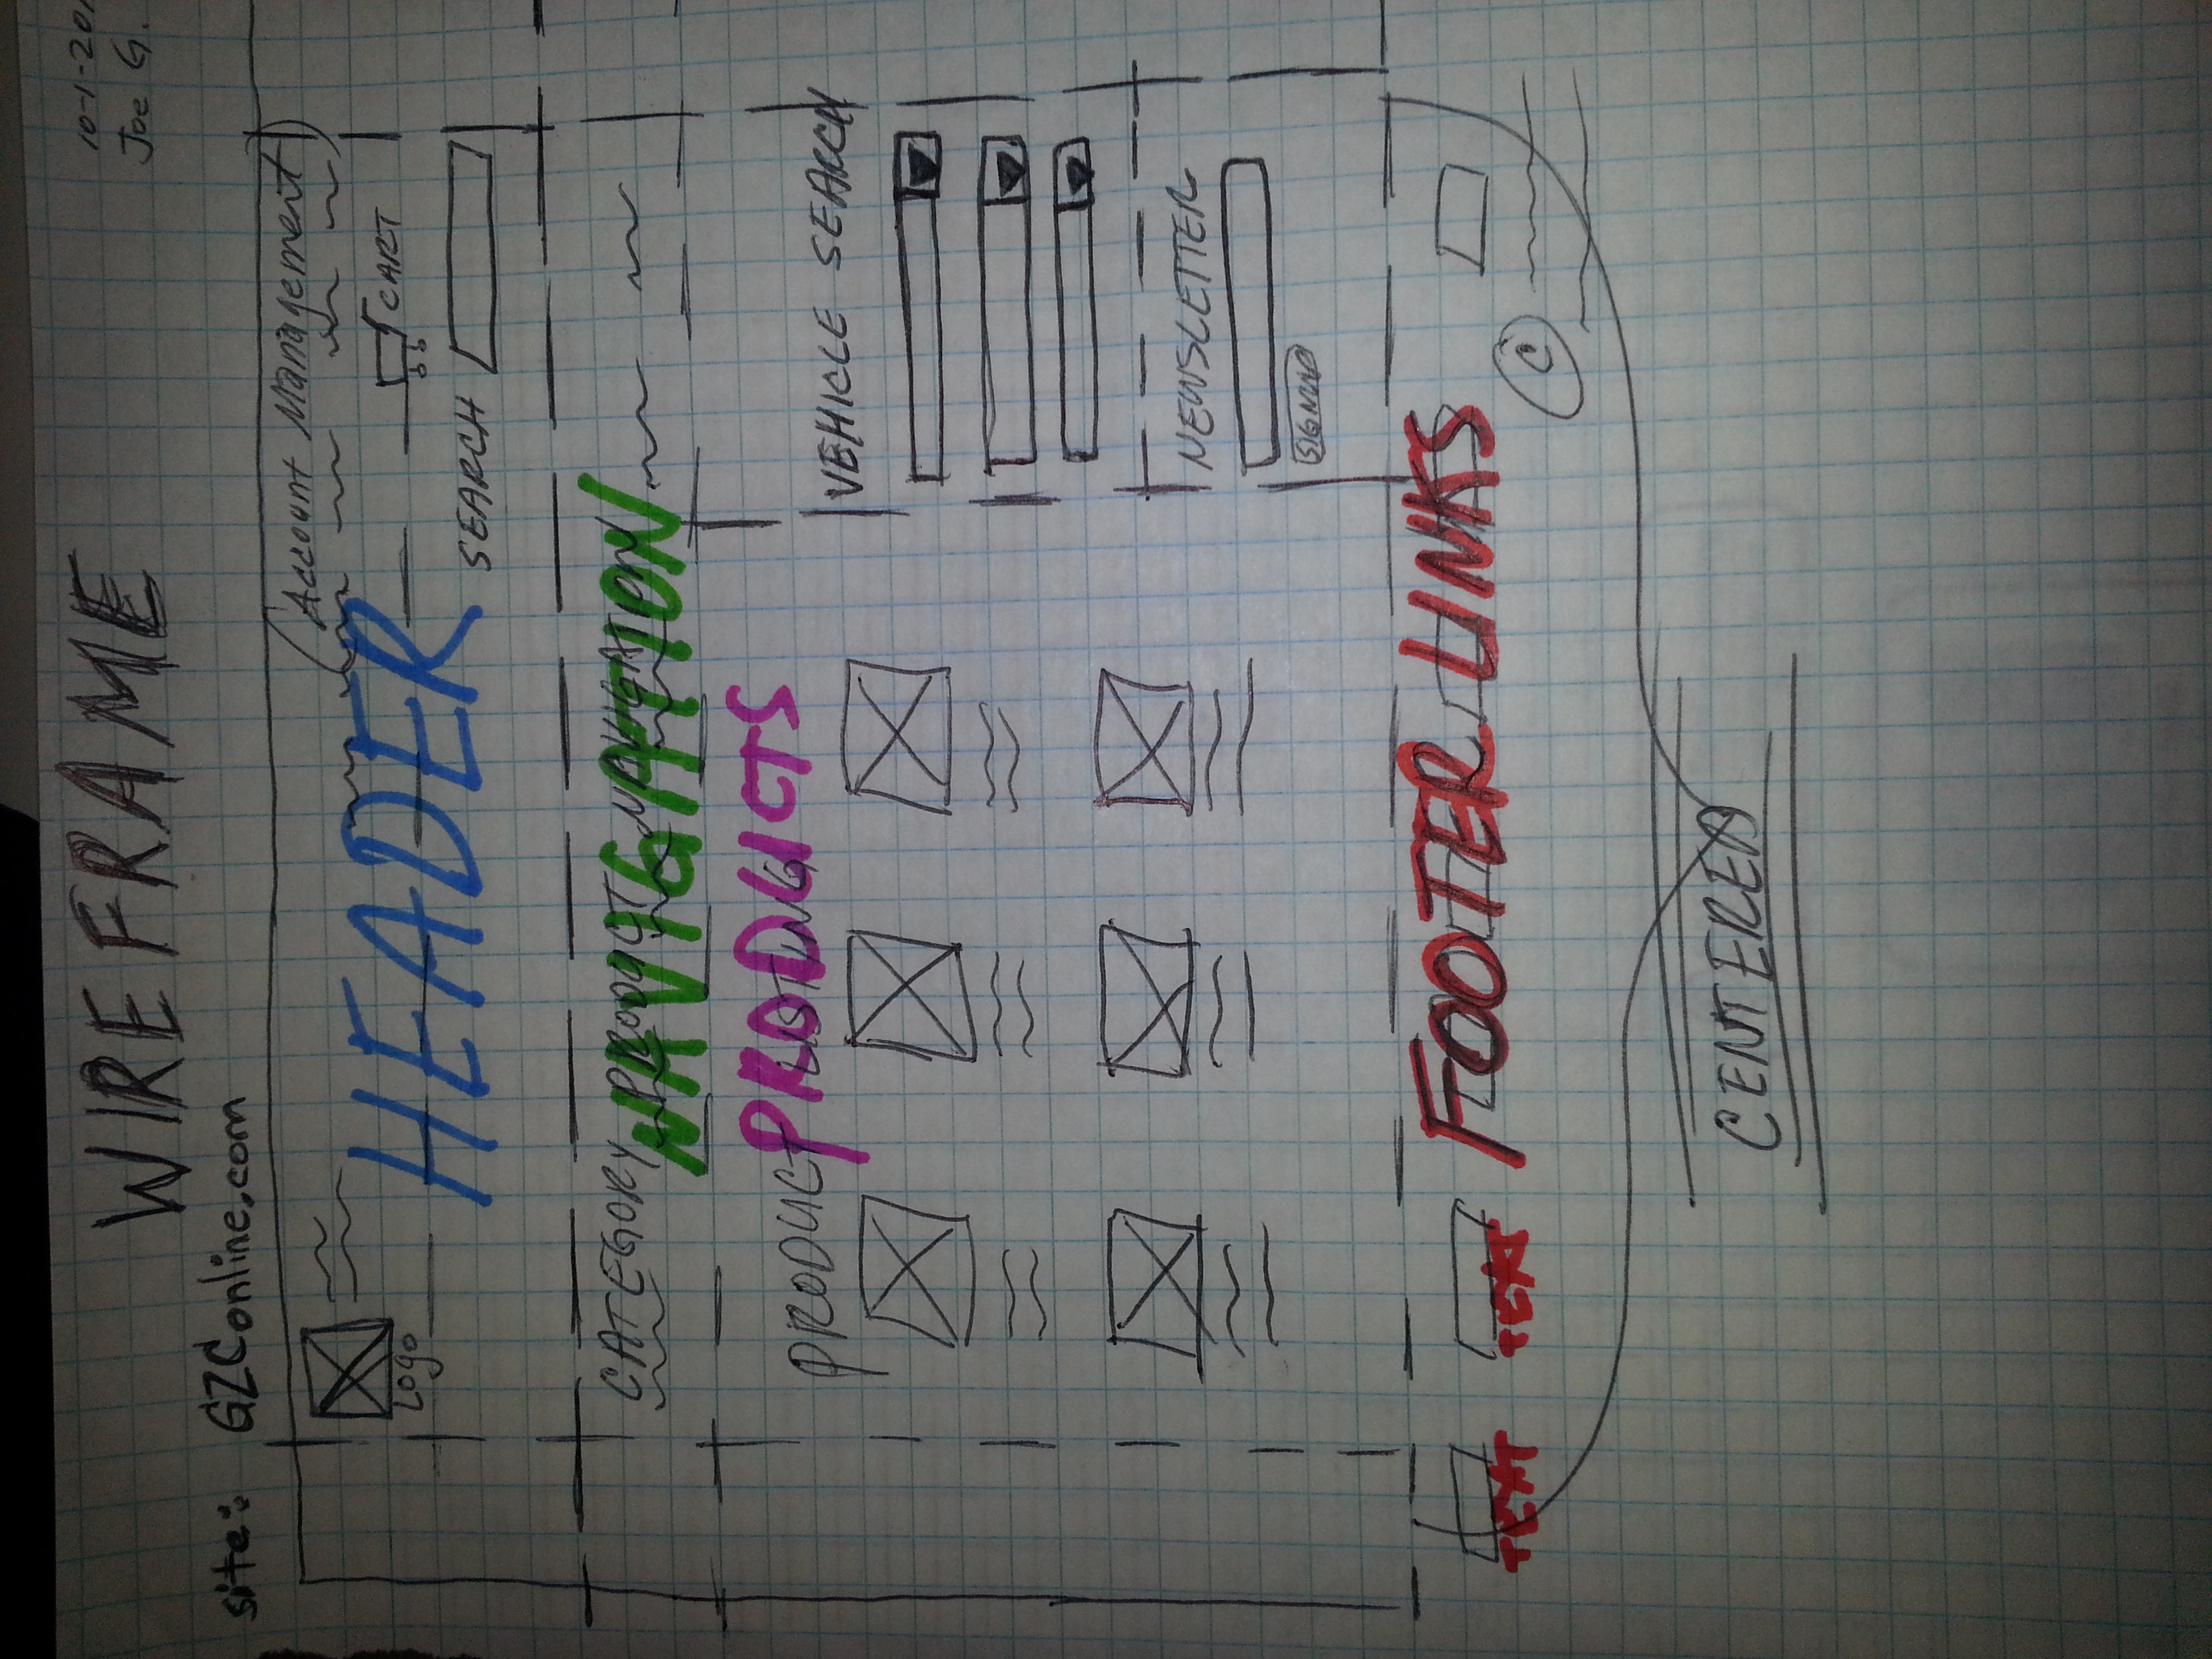 WIREFRAME
10-1-20
Joe G.
site: GZConline.com
(Account Management)
Logo
HEADER
CART
SEARCH
CATEGORY PRODUCT NAVIGATION
NAVIGATION
PRODUCTS
PRODUCT LISTING
VEHICLE SEARCH
NEWSLETTER
SIGNUP
FOOTER LINKS
TEXT TEXT
C
CENTERED